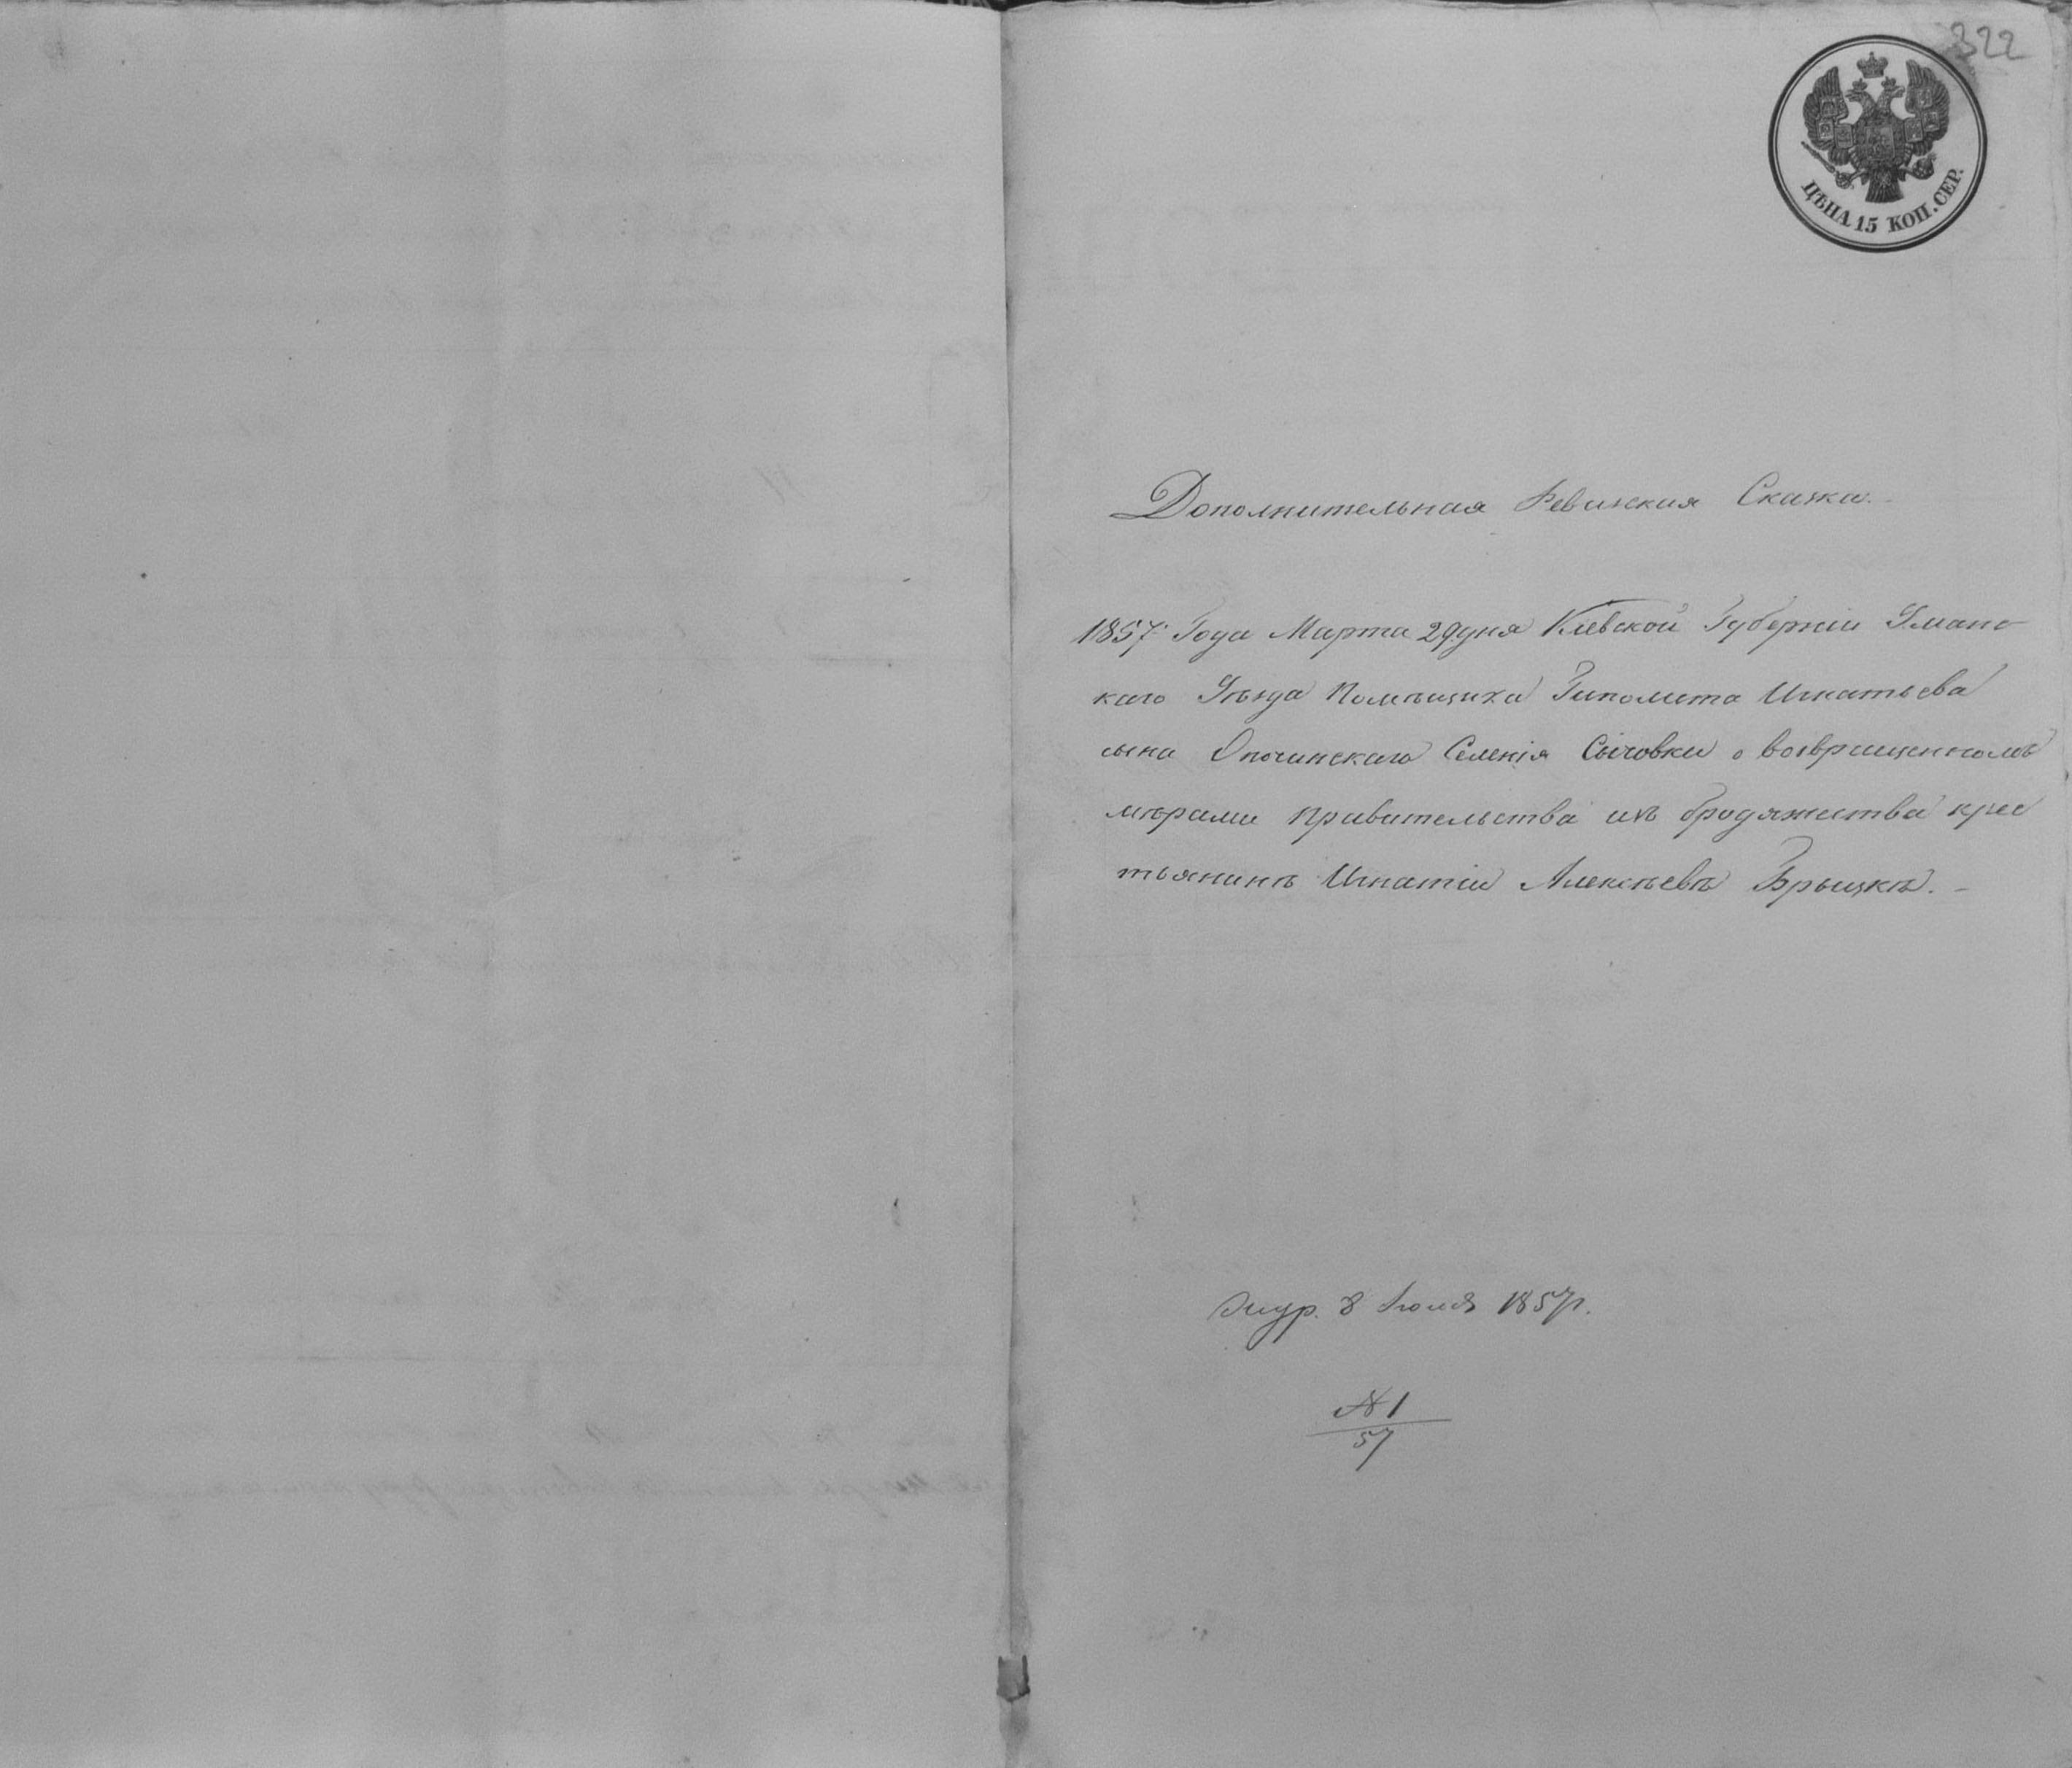 322
ЦѢНА 15 КОП. СЕР.
Дополнительная Ревизская Сказка.
1857 Года Марта 29 дня Кіевской Губерніи Уманс
каго Уѣзда Помѣщика Гиполита Игнатьева
сына Опочинскаго Селенія Сычовки о возвращенномъ
мѣрами правительства изъ бродяжества крес
тьянинѣ Игнатіи Алексѣевѣ Брыцкѣ.
Жур. 8 Іюля 1857 г.
№ 1
57